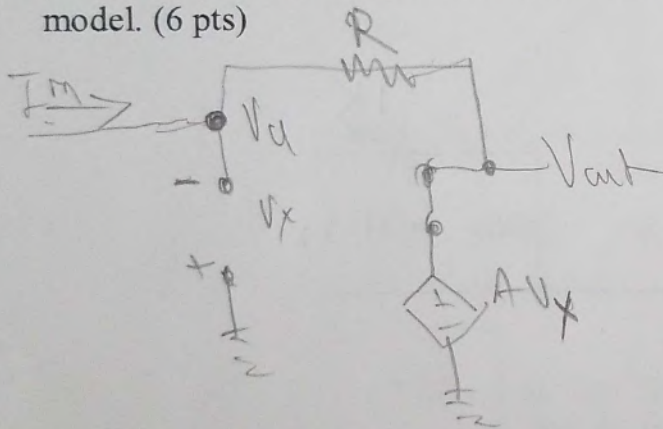 model. (6 pts)
R
Im
Va
-
Vx
Vout
+
+
-
AVx